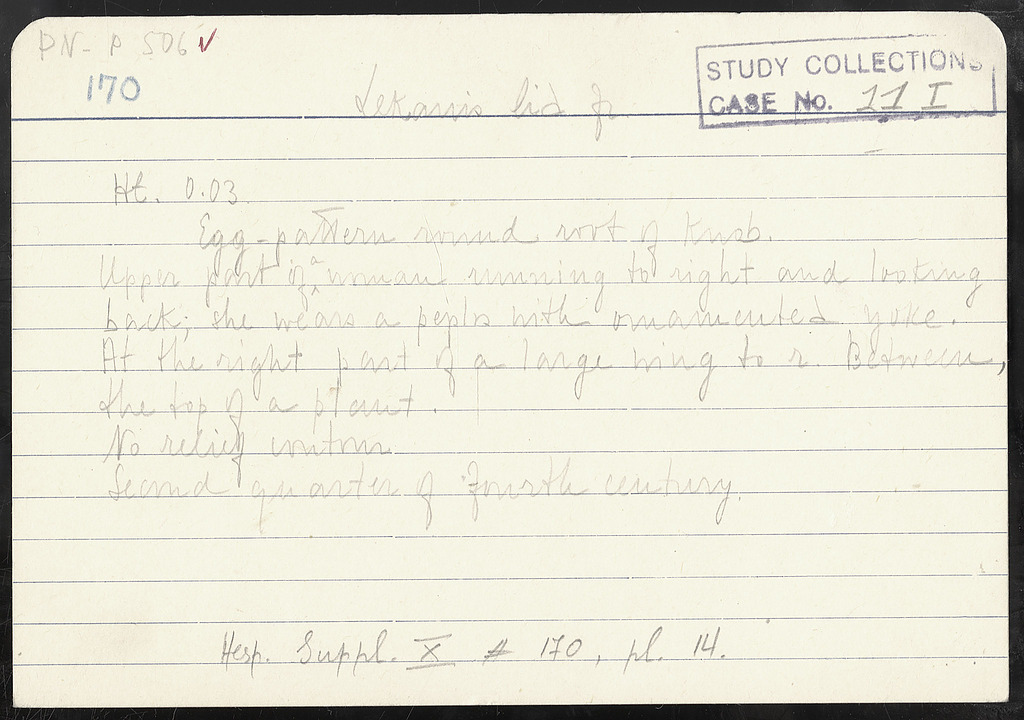 PN - P 506 ✓
170
STUDY COLLECTIONS
CASE No. 11 I
Lekanis lid fr.
Ht. 0.03
Egg-pattern round root of knob.
Upper part of a woman running to right and looking
back; she wears a peplos with ornamented yoke.
At the right part of a large wing to r. Between,
the top of a plant.
No relief contour
Second quarter of Fourth century.
Hesp. Suppl. X # 170, pl. 14.